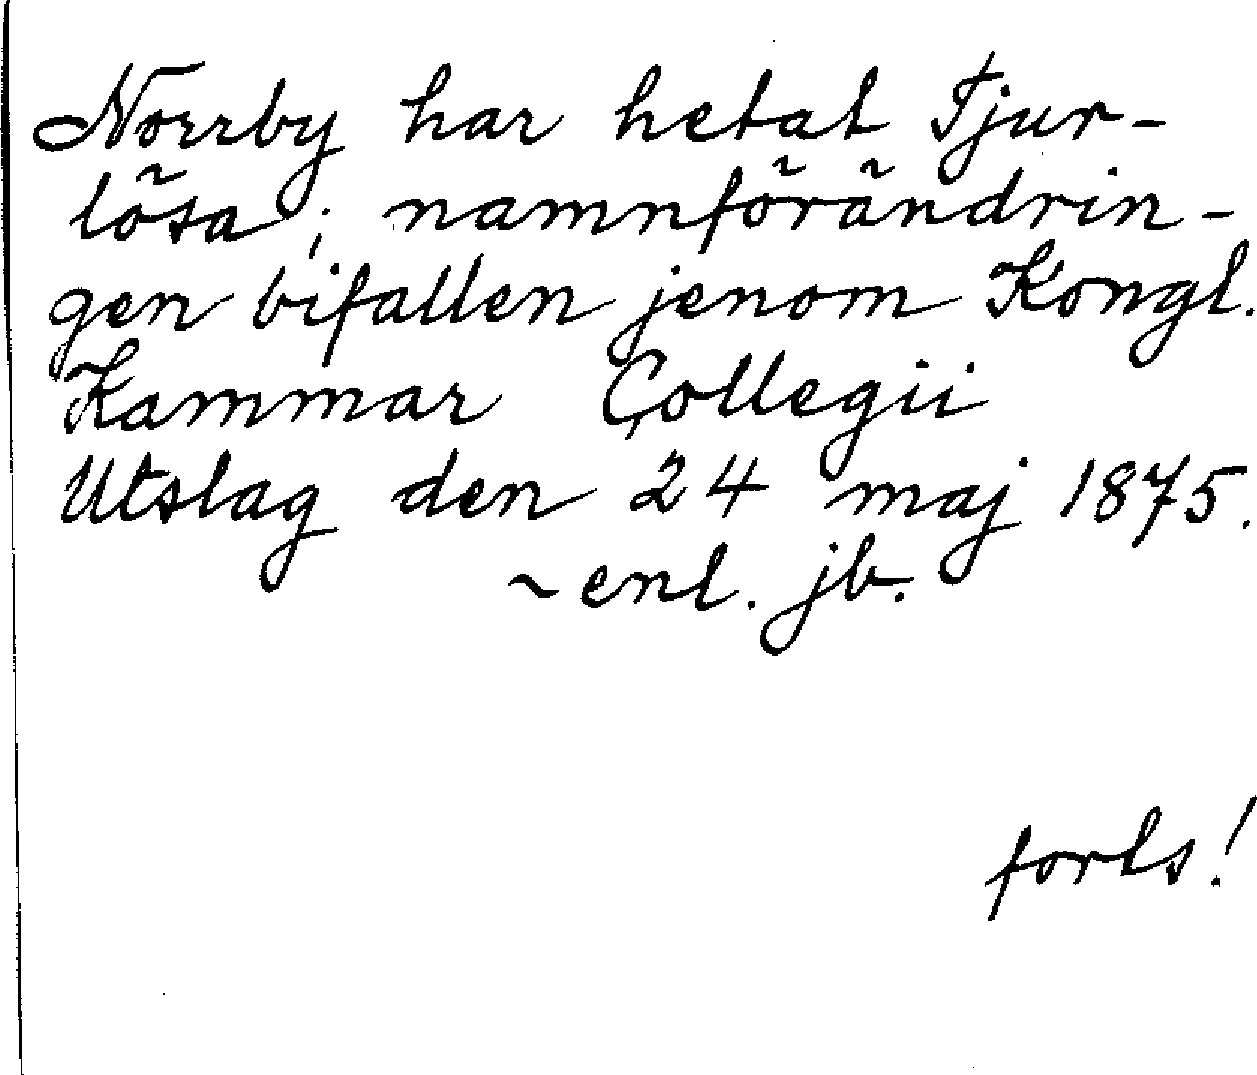 Norrby har hetat Tjur-
lösa; namnförändrin-
gen bifallen jenom Kongl.
Kammar Collegii
Utslag den 24 maj 1875.
~ enl. jb.
forts!